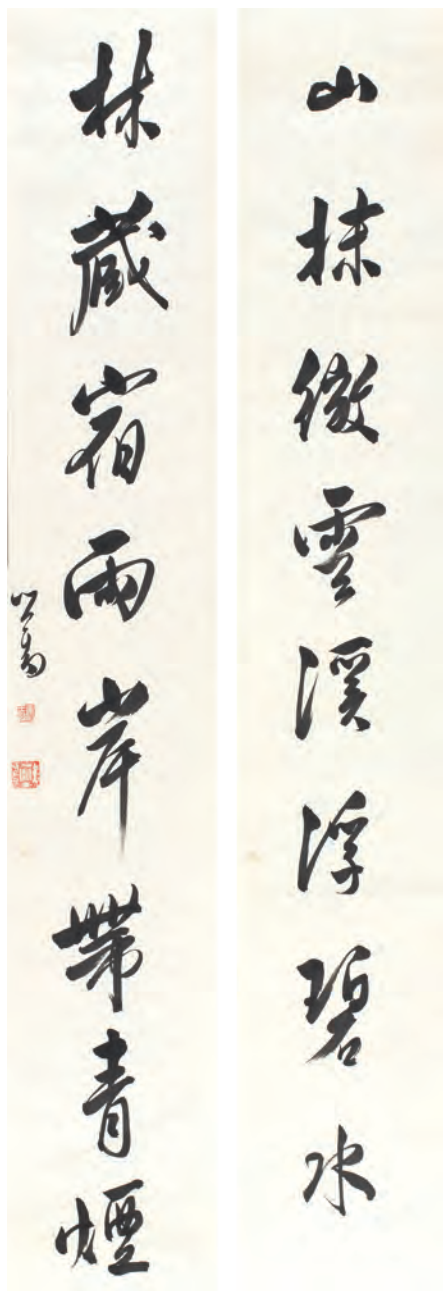 山抹微雲溪浮碧水
林藏宿雨岸帶青煙
心畬